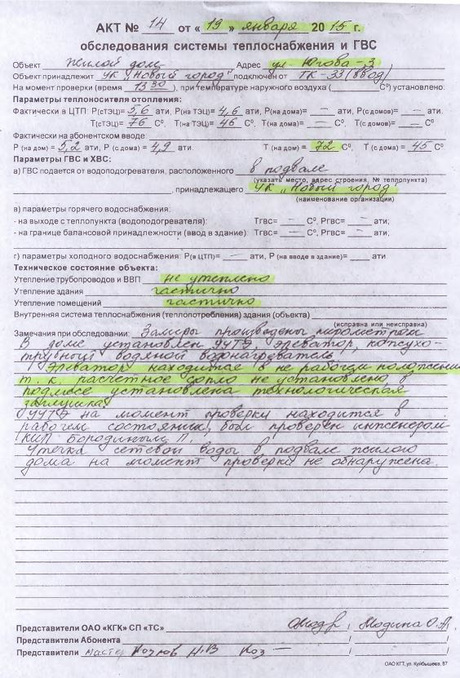 АКТ № 14 от « 19 » января 2015 г.
обследования системы теплоснабжения и ГВС
Объект Жилой дом Адрес ул Югова-3
Объект принадлежит УК „Новый город" подключен от ТК-33 (ввод)
На момент проверки (время 13 30 ), при температуре наружного воздуха ( С°) установлено.
Параметры теплоносителя отопления:
Фактически в ЦТП Р(сТЭЦ)= 5,6 ати, Р(на ТЭЦ)= 4,6 ати, Р(на дома)= – ати, Р(с домов)= – ати.
Т(сТЭЦ)= 76 С° Т(на ТЭЦ)= 46 С° Т(на дома)= – С°, Т(с домов)= – С°
Фактически на абонентском вводе:
Р (на дом)= 5,2 ати, Р (с дома)= 4,9 ати. Т (на дом)= 72 С° Т (с дома)= 45 С°
Параметры ГВС и ХВС:
а) ГВС подается от водоподогревателя, расположенного в подвале
(указать место, адрес строения, № теплопункта)
, принадлежащего УК „Новый город
(наименование организации)
в) параметры горячего водоснабжения:
- на выходе с теплопункта (водоподогревателя): Тгвс= – С°, Ргвс= – ати;
- на границе балансовой принадлежности (ввод в здание): Тгвс= – С°, Ргвс= – ати;
г) параметры холодного водоснабжения: Р(в ЦТП)= – ати, Р (на вводе в здание)= – ати
Техническое состояние объекта:
Утепление трубопроводов и ВВП не утеплено
Утепление здания частично
Утепление помещений частично
Внутренняя система теплоснабжения (теплопотребления) здания (объекта)
(исправна или неисправна)
Замечания при обследовании: Замеры произведены пирометром
В доме установлен УУТЭ, элеватор, кожухо-
трубный водяной водонагреватель.
Элеватор находится в не рабочем положении
т. к. расчетное сопло не установлено, в
подмесе установлена технологическая
заглушка.
УУТЭ на момент проверки находится в
рабочем состоянии, был проверен инженером
КИП Бородиным Л.
Утечка сетевой воды в подвале жилого
дома на момент проверки не обнаружена.
Представители ОАО «КГК» СП «ТС» / Модина О.А.
Представители Абонента
Представители мастер Н.В
ОАО КГТ, ул. Куйбышева, 87